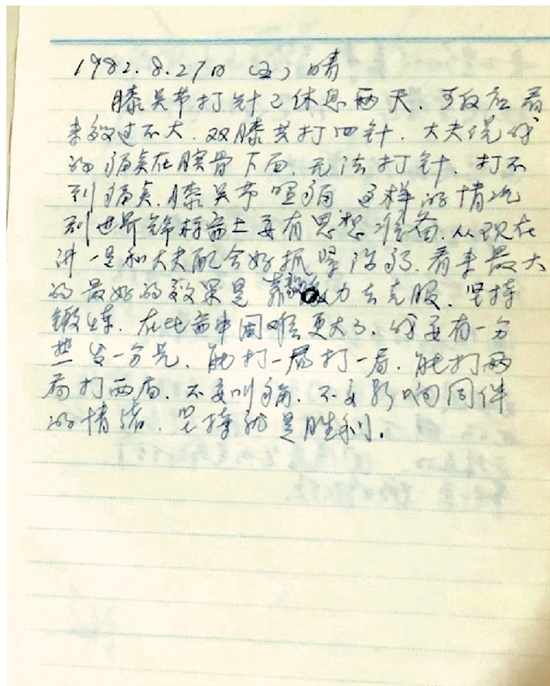 1982.8.27日(五)晴
膝关节打针已休息两天.可反应看
来效过不大.双膝共打四针.大夫说我
的痛点在膑骨下面.无法打针.打不
到痛点.膝关节照痛 这样的情况
到世界锦标赛上要有思想准备.从现在
讲一是和大夫配合好抓紧治疗.看来最大
的最好的效果是靠毅力去克服.坚持
锻炼.在比赛中困难更大了.我要有一分
热发一分光.能打一局打一局.能打两
局打两局.不要叫痛.不要影响同伴
的情绪.坚持就是胜利.